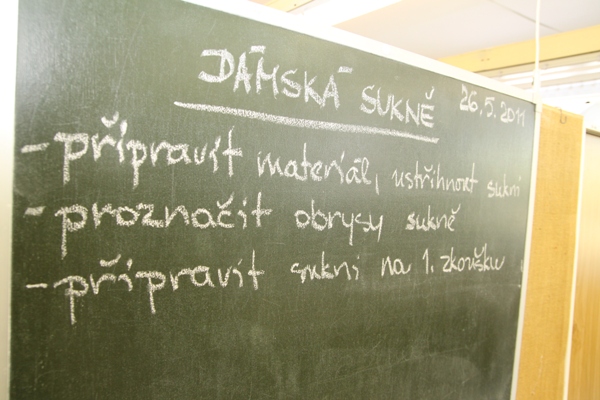 DÁMSKÁ SUKNĚ 26.5.2011
- připravit materiál, ustřihnout sukni
- proznačit obrysy sukně
- připravit sukni na 1. zkoušku